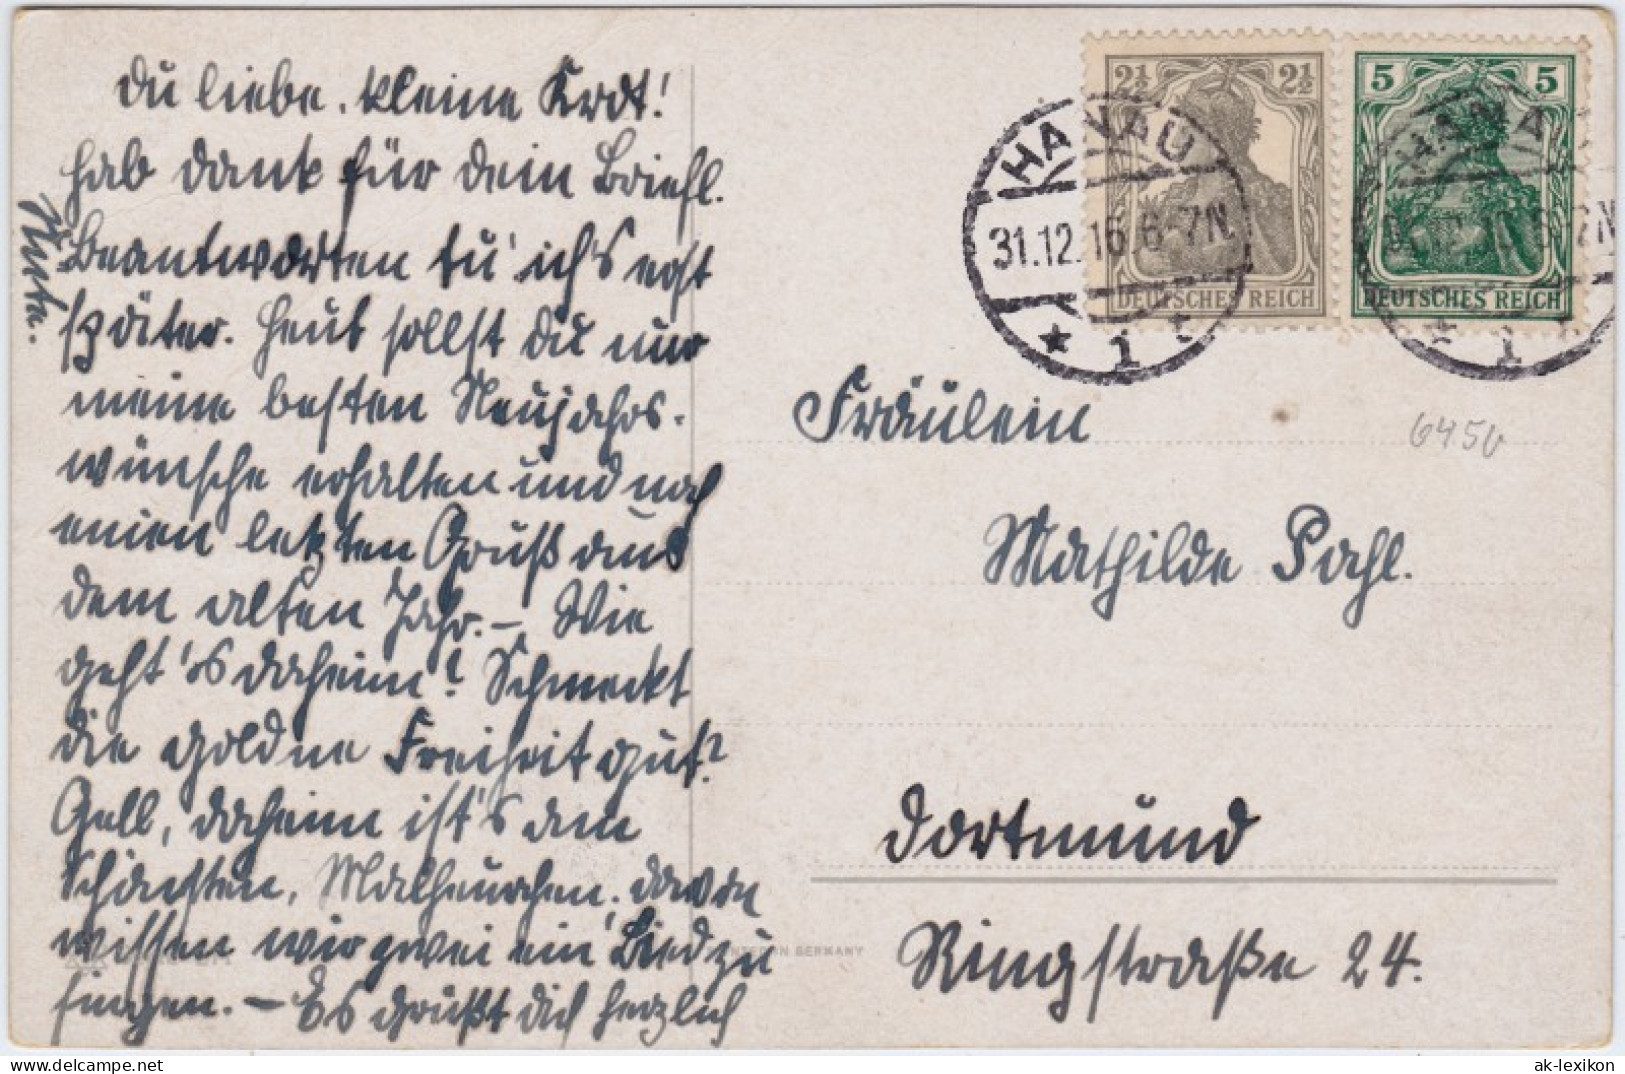 Du liebe, kleine Krot!
Hab Dank für Dein Briefl.
Beantworten tu' ich's erst
später. Heut sollst Du nur
meine besten Neujahrs-
wünsche erhalten und noch
einen letzten Gruß aus
dem alten Jahr. – Wie
geht's daheim? Schmeckt
die goldne Freiheit gut?
Gell, daheim ist's am
Schönsten, Malheurchen, davon
wissen wir zwei ein Lied zu
singen. – Es grüßt Dich herzlich
2½ 2½
DEUTSCHES REICH
5 5
DEUTSCHES REICH
HANAU
31.12.16.6-7N.
* 1 *
HANAU
* 1 *
6450
Fräulein
Mathilde Pahl.
Dortmund
Ringstraße 24.
GERMANY
ak-lexikon